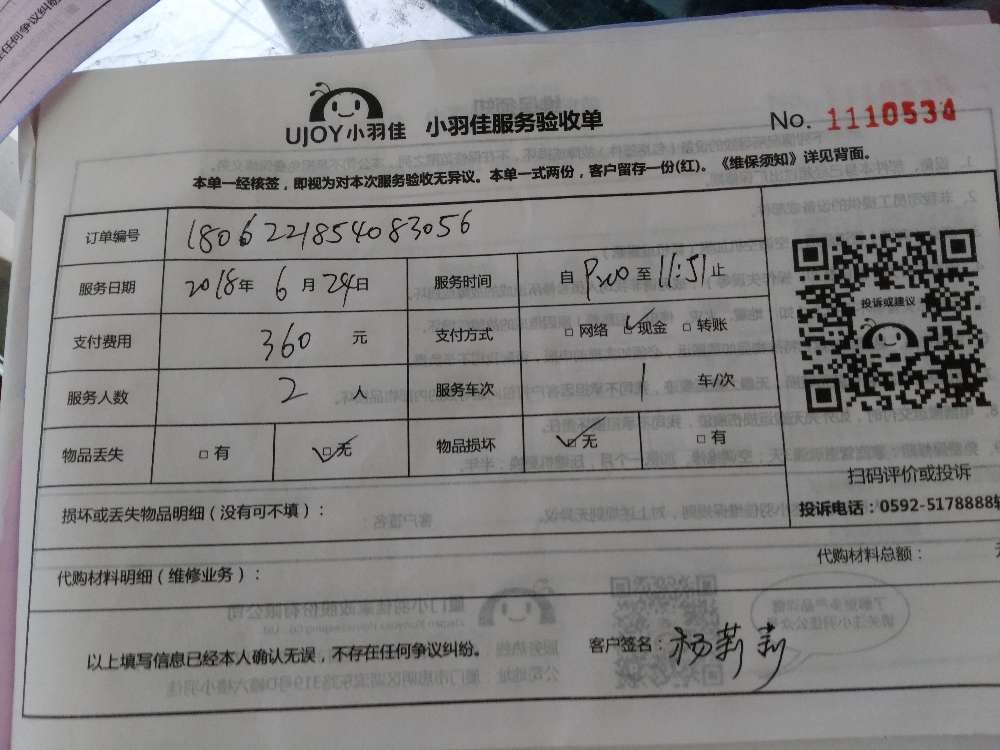 在任何争议纠纷
UJOY小羽佳 小羽佳服务验收单 No. 1110534
本单一经核签，即视为对本次服务验收无异议。本单一式两份，客户留存一份(红)。《维保须知》详见背面。
订单编号 1806221854083056
服务日期 2018年 6月 24日 服务时间 自 至 11:51止
支付费用 360 元 支付方式 □网络 ☑现金 □转账
服务人数 2 人 服务车次 1 车/次
物品丢失 □有 ☑无 物品损坏 ☑无 □有
投诉或建议
扫码评价或投诉
投诉电话：0592-5178888转
损坏或丢失物品明细（没有可不填）：
代购材料明细（维修业务）： 代购材料总额：
以上填写信息已经本人确认无误，不存在任何争议纠纷。 客户签名：杨莉莉